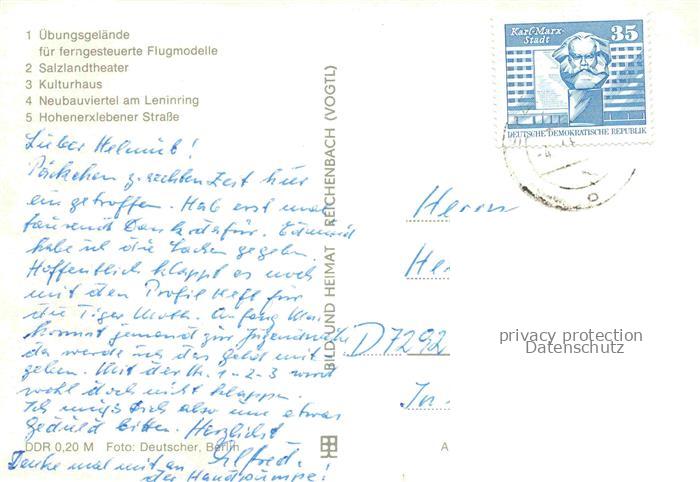 1 Übungsgelände
für ferngesteuerte Flugmodelle
2 Salzlandtheater
3 Kulturhaus
4 Neubauviertel am Leninring
5 Hohenerxlebener Straße
Lieber Helmut!
Päckchen z. rechten Zeit hier
eingetroffen. Hab erst mal
tausend Dank dafür. Edmund
habe ich die Sachen gegeben.
Hoffentlich klappt es noch
mit den Profil Heft für
die Tiger Moth. Anfang Mai
kommt jemand zur Jugendweihe
da werde ich das Geld mit
geben. Mit der 1-2-3 wird
wohl doch nicht klappen.
Ich muß Dich also um etwas
Geduld bitten. Herzlichst
Alfred.
Denke mal mit an
der Handpumpe!
DDR 0,20 M Foto: Deutscher, Berlin
BILD UND HEIMAT REICHENBACH (VOGTL)
Karl-Marx-
Stadt
35
DEUTSCHE DEMOKRATISCHE REPUBLIK
Herrn
He
D 7292
In
A
privacy protection
Datenschutz